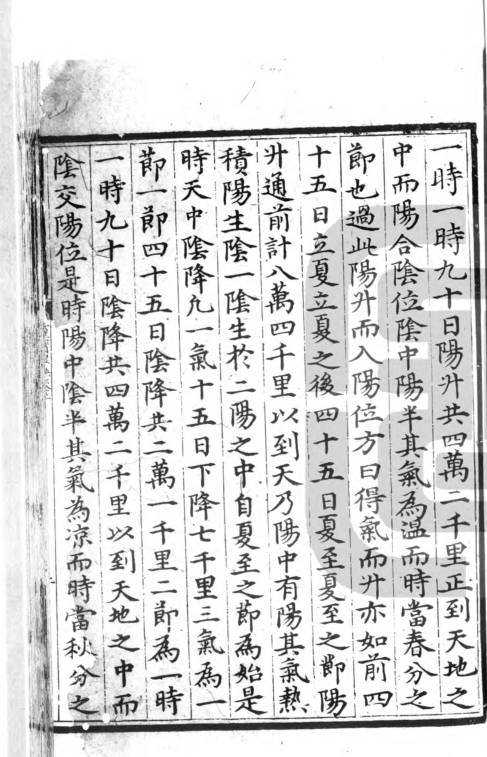 一時一時九十日陽升共四萬二千里正到天地之
中而陽合陰位陰中陽半其氣為溫而時當春分之
節也過此陽升而入陽位方曰得氣而升亦如前四
十五日立夏立夏之後四十五日夏至夏至之節陽
升通前計八萬四千里以到天乃陽中有陽其氣熱
積陽生陰一陰生於二陽之中自夏至之節為始是
時天中陰降凢一氣十五日下降七千里三氣為一
節一節四十五日陰降共二萬一千里二節為一時
一時九十日陰降共四萬二千里以到天地之中而
陰交陽位是時陽中陰半其氣為凉而時當秋分之